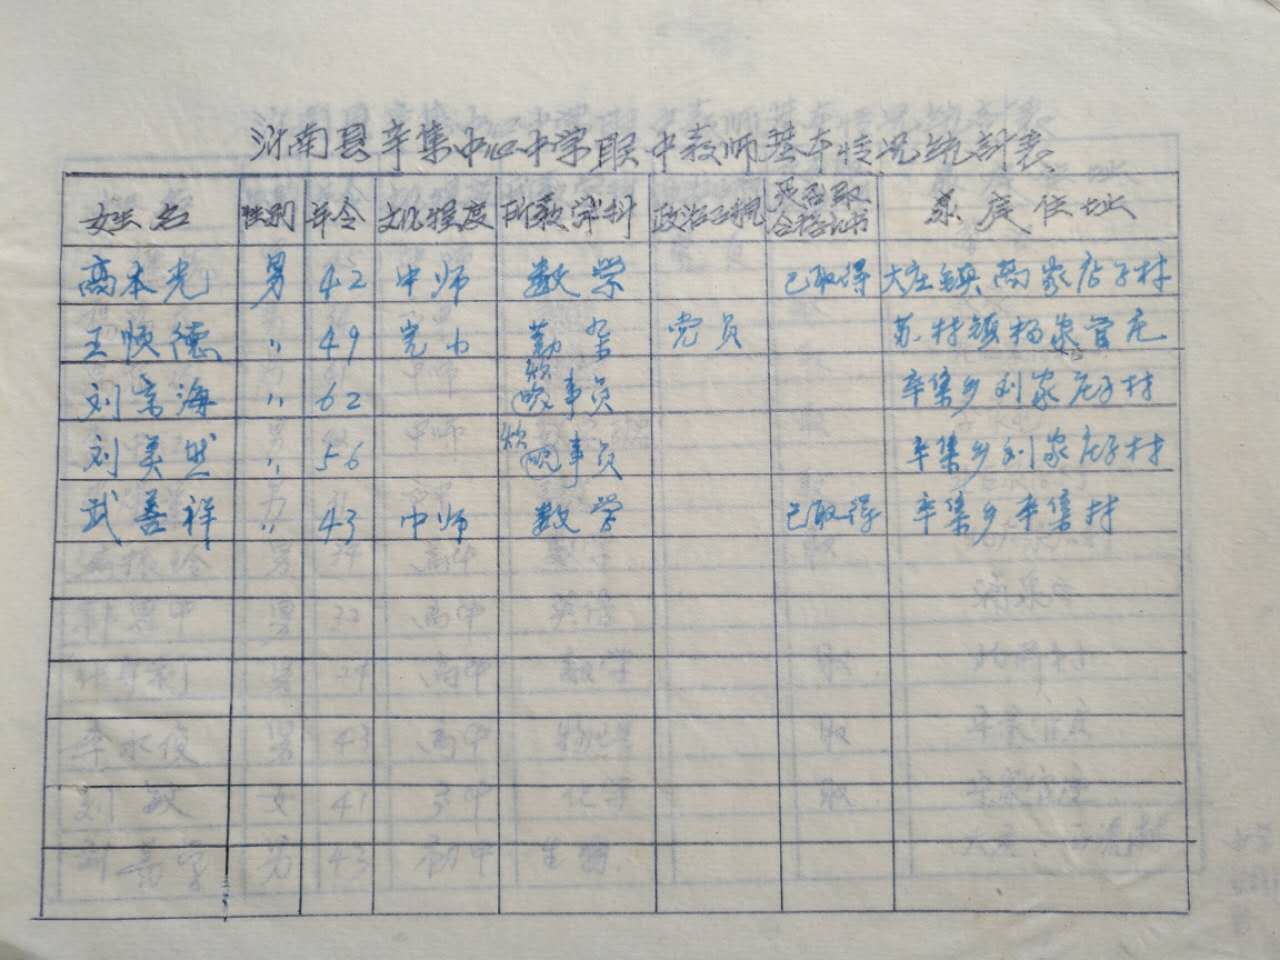 沂南县辛集中心中学职中教师基本情况统计表
姓名 性别 年令 文化程度 所教学科 政治面貌 是否取合格证书 家庭住址
高本光 男 42 中师 数学 已取得 大庄镇高家店子村
王顺德 〃 49 完小 勤杂 党员 苏村镇杨家官庄
刘京海 〃 62 炊事员 辛集乡刘家庄子村
刘美然 〃 56 炊事员 辛集乡刘家庄子村
武善祥 〃 43 中师 数学 已取得 辛集乡辛集村